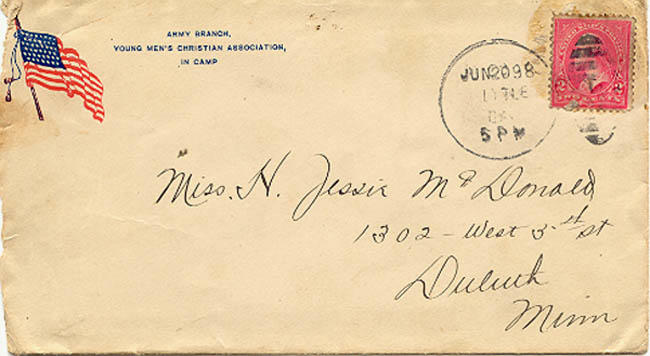 ARMY BRANCH,
YOUNG MEN'S CHRISTIAN ASSOCIATION,
IN CAMP
JUN 20 98
5 PM
UNITED STATES
TWO CENTS
Miss. H. Jessie McDonald
1302 - West 3rd st
Duluth
Minn